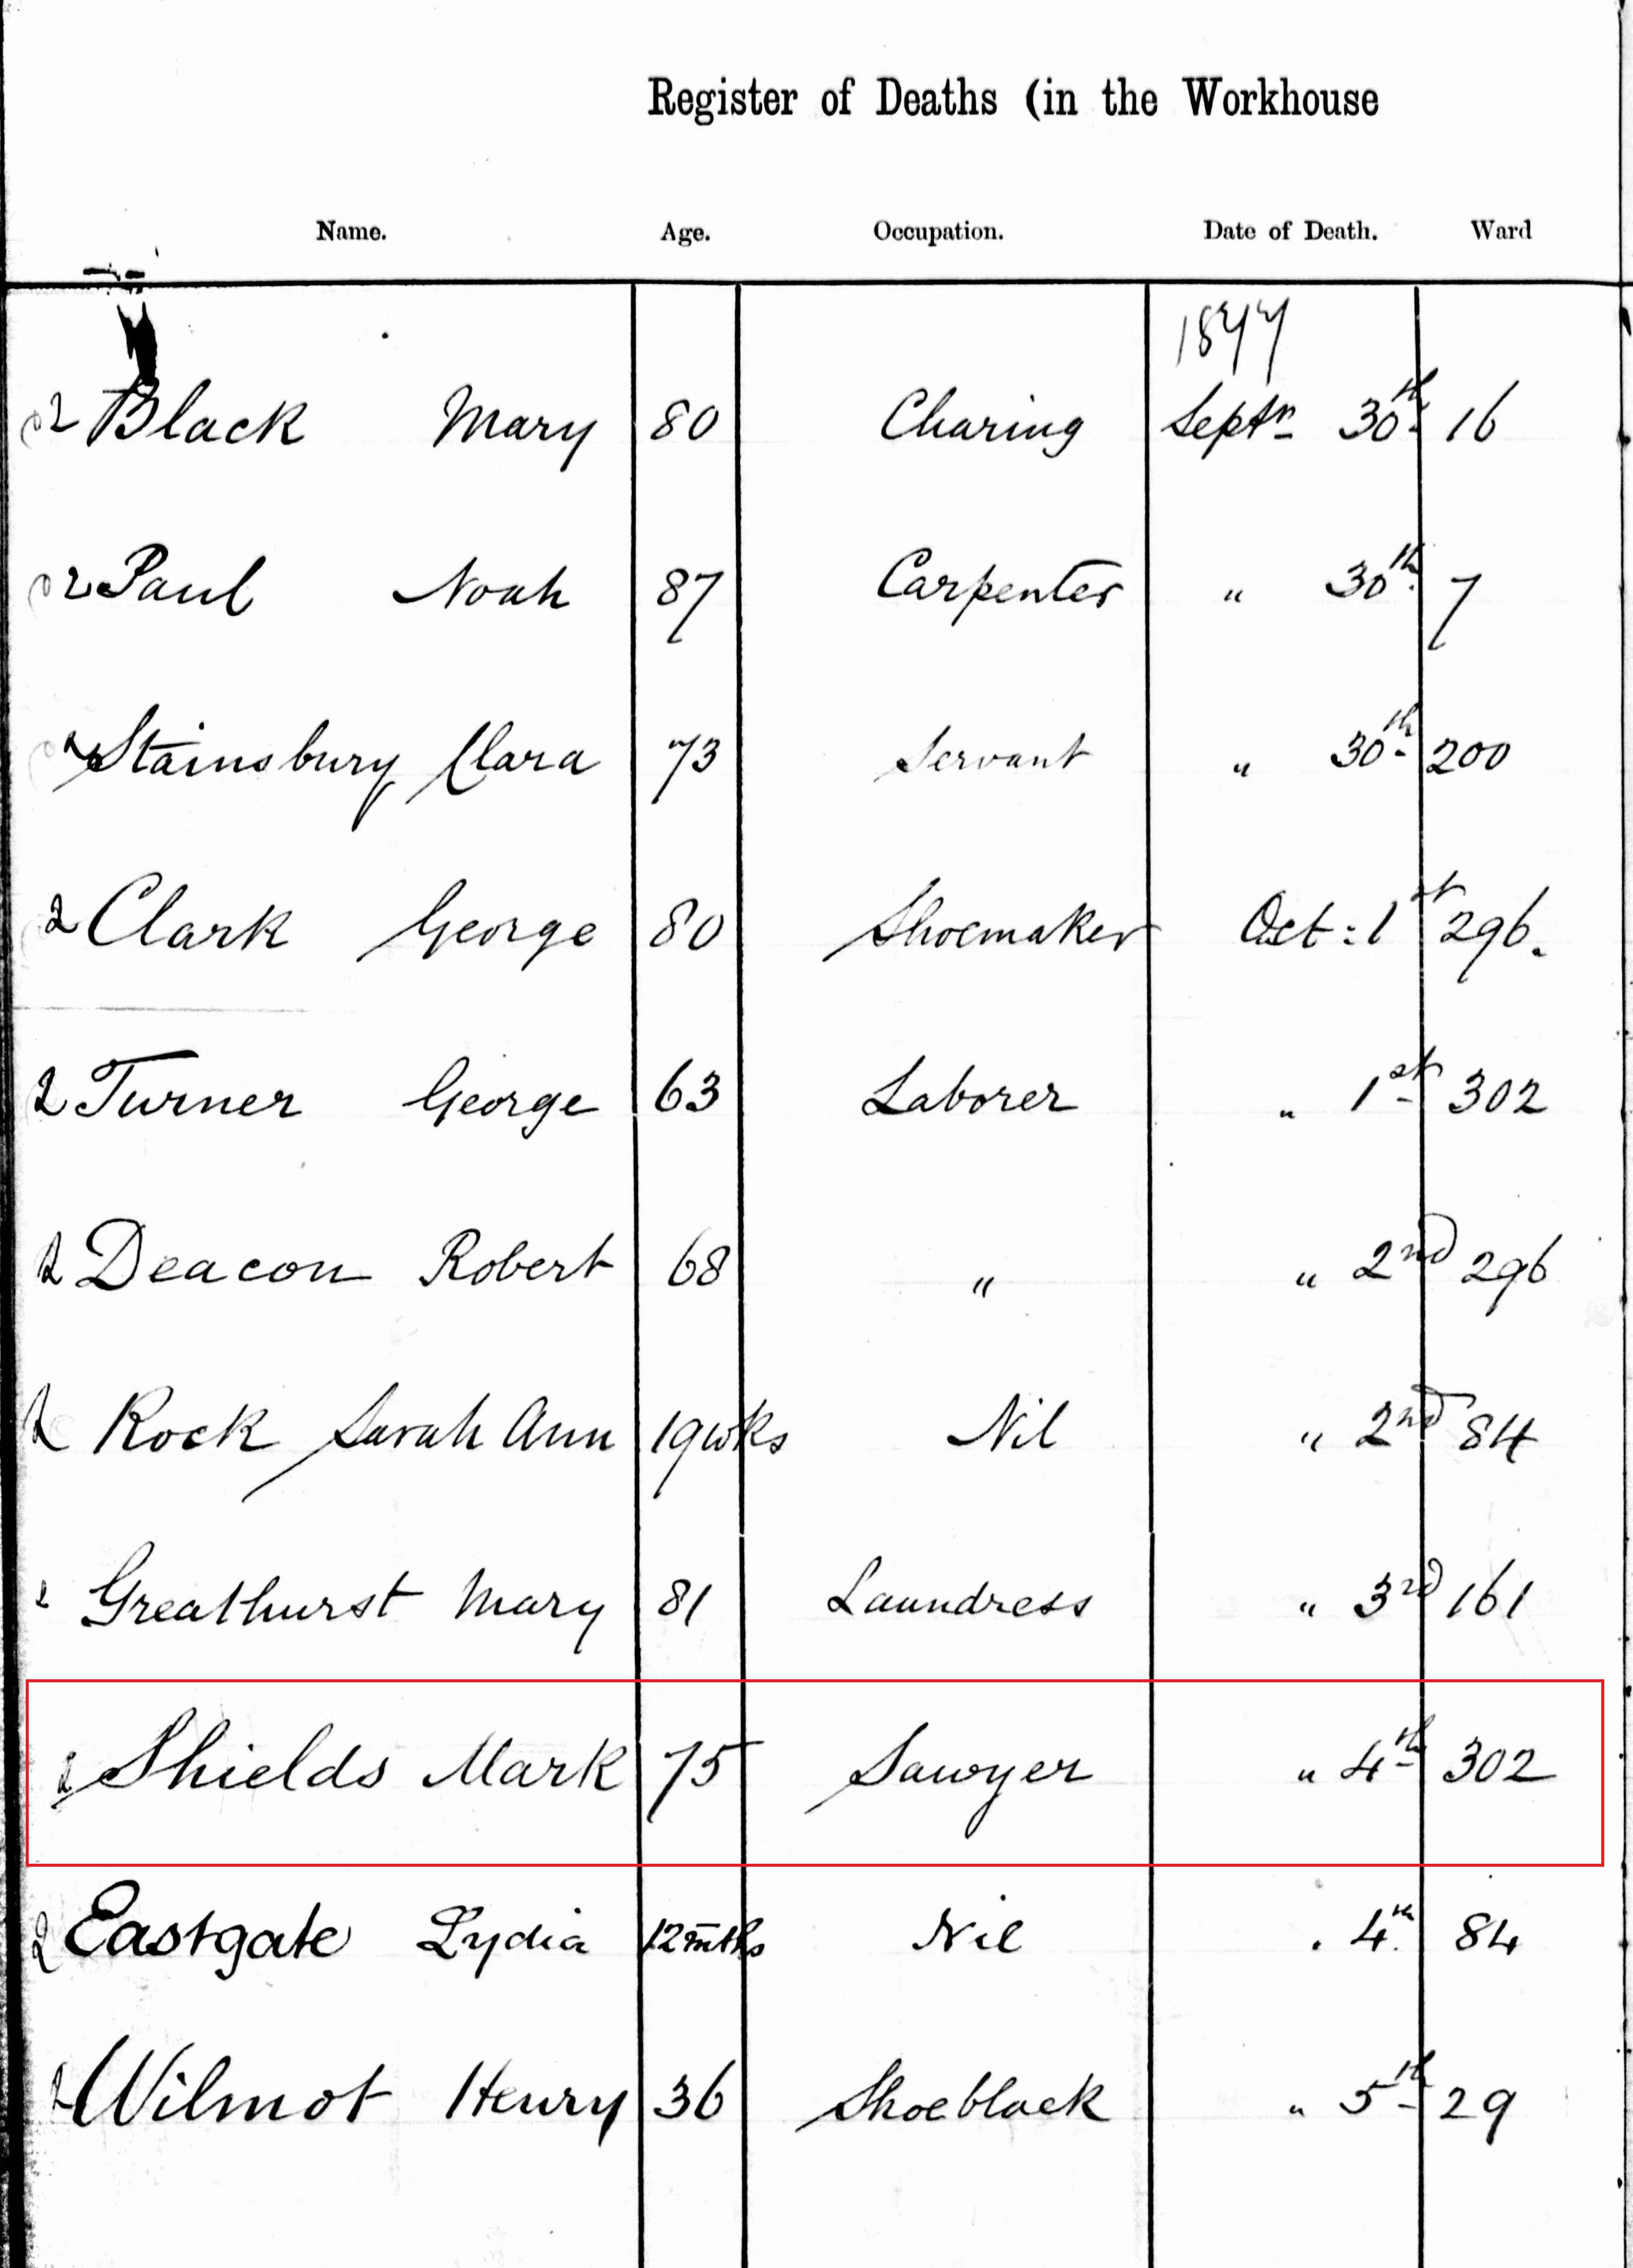 Register of Deaths (in the Workhouse
Name. Age. Occupation. Date of Death. Ward
1877
2 Black Mary 80 Charing Septr 30th 16
2 Paul Noah 87 Carpenter " 30th 7
2 Stainsbury Clara 73 Servant " 30th 200
2 Clark George 80 Shoemaker Oct: 1st 296.
2 Turner George 63 Laborer " 1st 302
2 Deacon Robert 68 " " 2nd 296
2 Rock Sarah Ann 19wks Nil " 2nd 84
2 Greathurst Mary 81 Laundress " 3rd 161
2 Shields Mark 75 Sawyer " 4th 302
2 Eastgate Lydia 12mths Nil " 4th 84
2 Wilmot Henry 36 Shoeblack " 5th 29